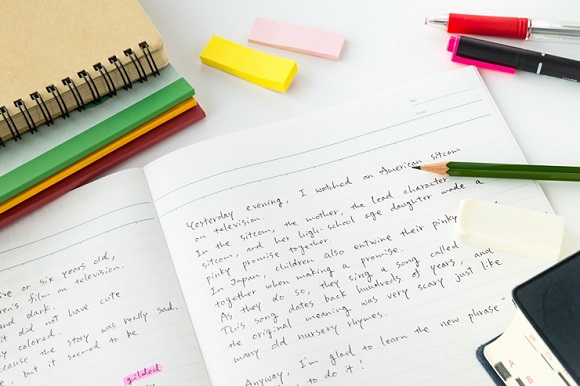 ive or six years old,
ren's film on television.
and dark.
it did not have cute
y colored.
ecause the story was really sad.
, but it seemed to be
gilded
No.
Date
Yesterday evening, I watched an American sitcom
on television.
In the sitcom, the mother, the lead character
sitcom, and her high-school age daughter made a
pinky promise together.
In Japan, children also entwine their pinky
together when making a promise.
As they do so, they sing a song called
This song dates back hundreds of years, and
the original meaning was very scary just like
many old nursery rhymes.
Anyway, I'm glad to learn the new phrase "
to do it!
A